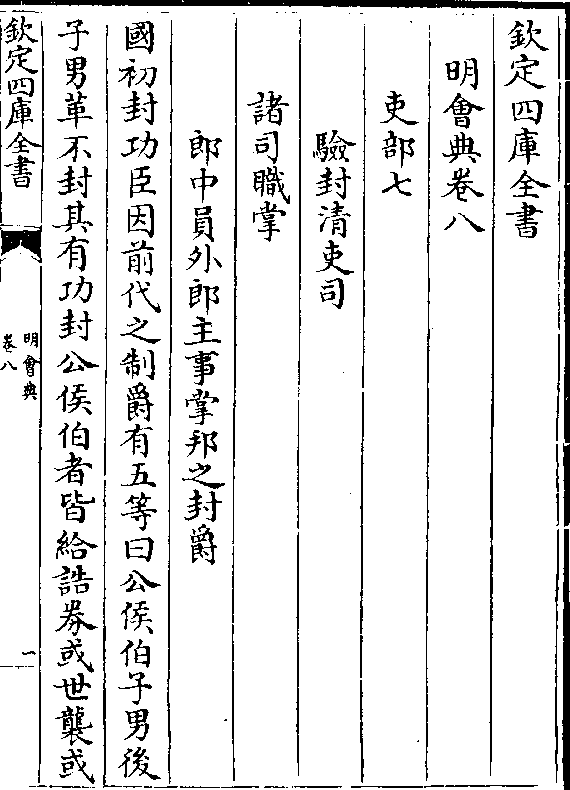 欽定四庫全書
明會典卷八
吏部七
驗封清吏司
諸司職掌
郎中員外郎主事掌邦之封爵
國初封功臣因前代之制爵有五等曰公侯伯子男後
子男革不封其有功封公侯伯者皆給誥券或世襲或
欽定四庫全書
明會典
卷八
一